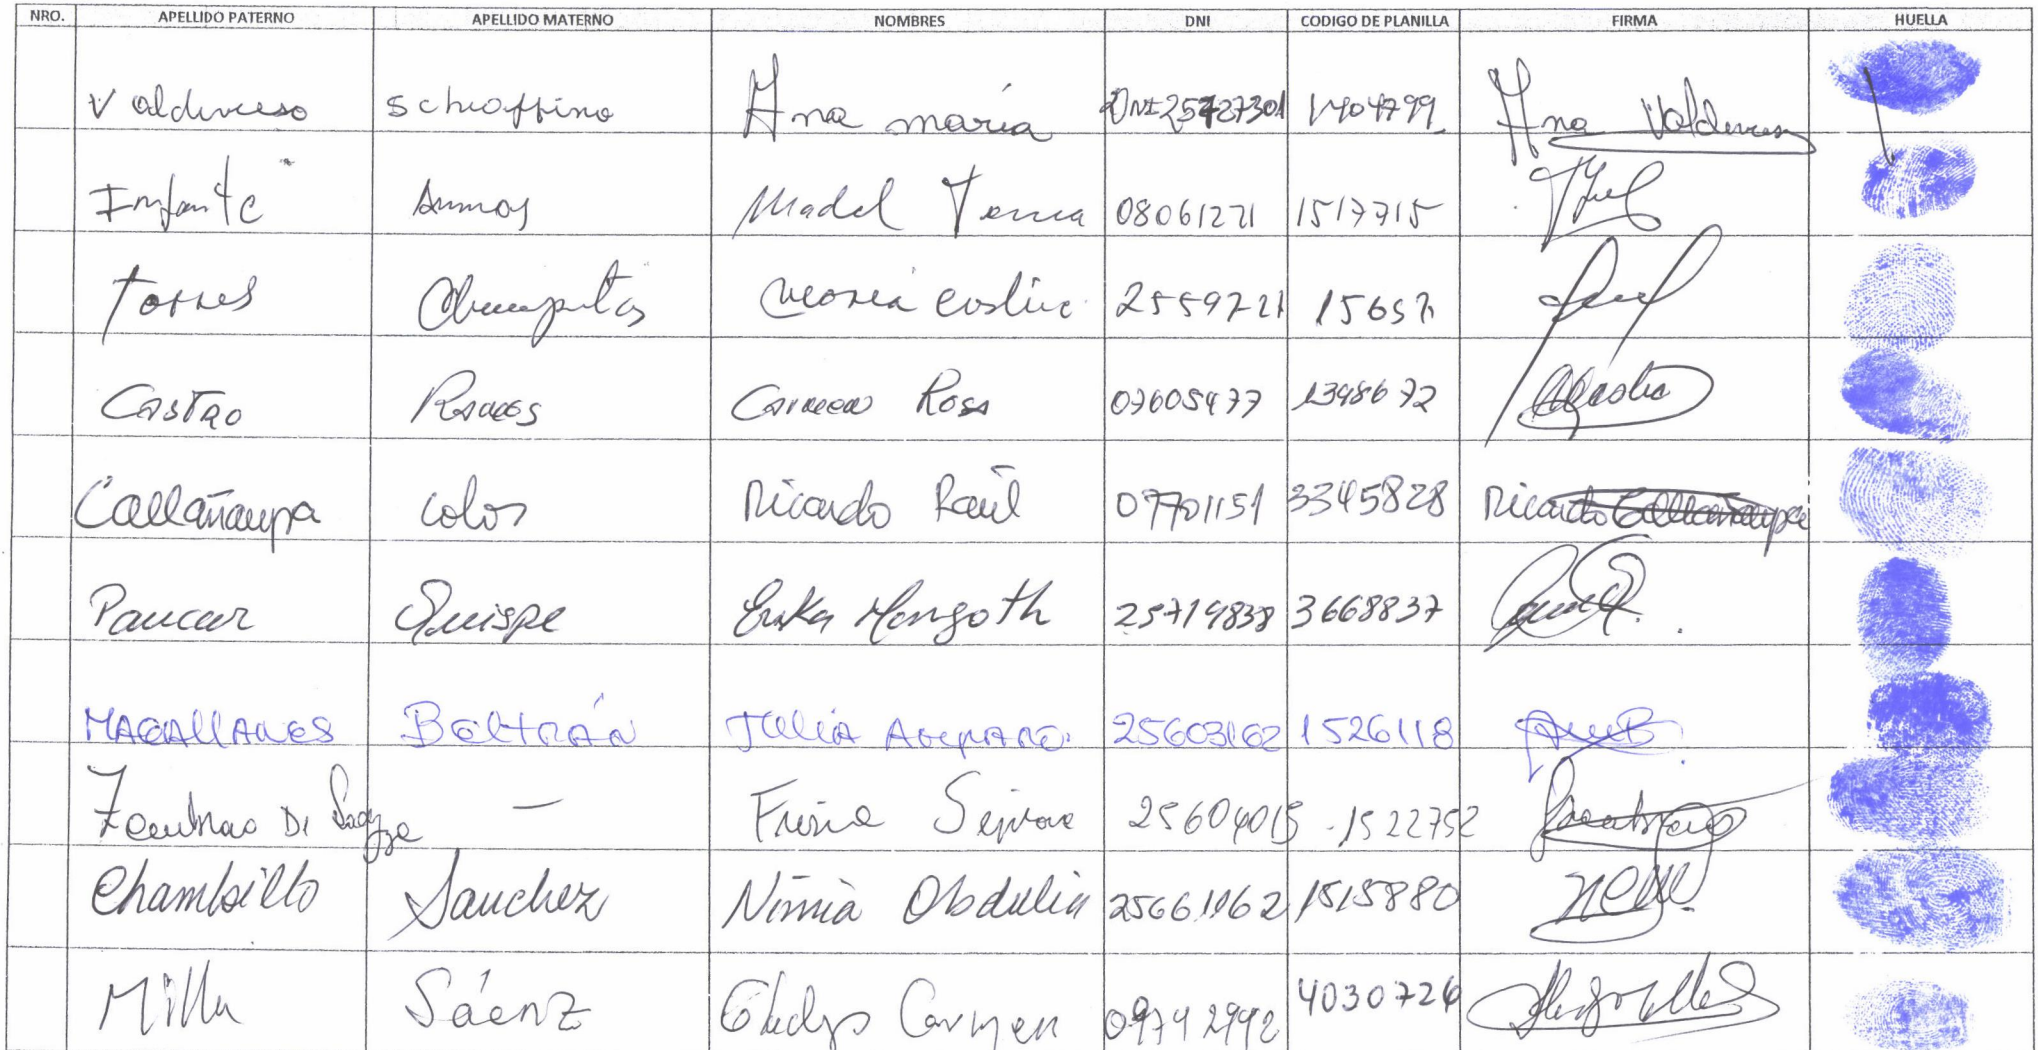 NRO. APELLIDO PATERNO APELLIDO MATERNO NOMBRES DNI CODIGO DE PLANILLA FIRMA HUELLA
Valdivieso Schiaffino Ana maría DNI 25727301 1404799 Ana
Infante 08061221 1517715
Torres Chumpitas 15657
Castro Ramos Carmen Rosa 07605477 1398672
Callañaupa Colos Ricardo Raúl 07701151 3345828 Ricardo Callañaupa
Paucar Quispe Erika Margoth 25719838 3668837
MAGALLANES BELTRÁN JULIA AMPARO 25603162 1526118
Di 25604015 1522752
Chambillo Sanchez Nimia Obdulia 25661062 1515880
Milla Sáenz Gladys Carmen 09742992 4030726